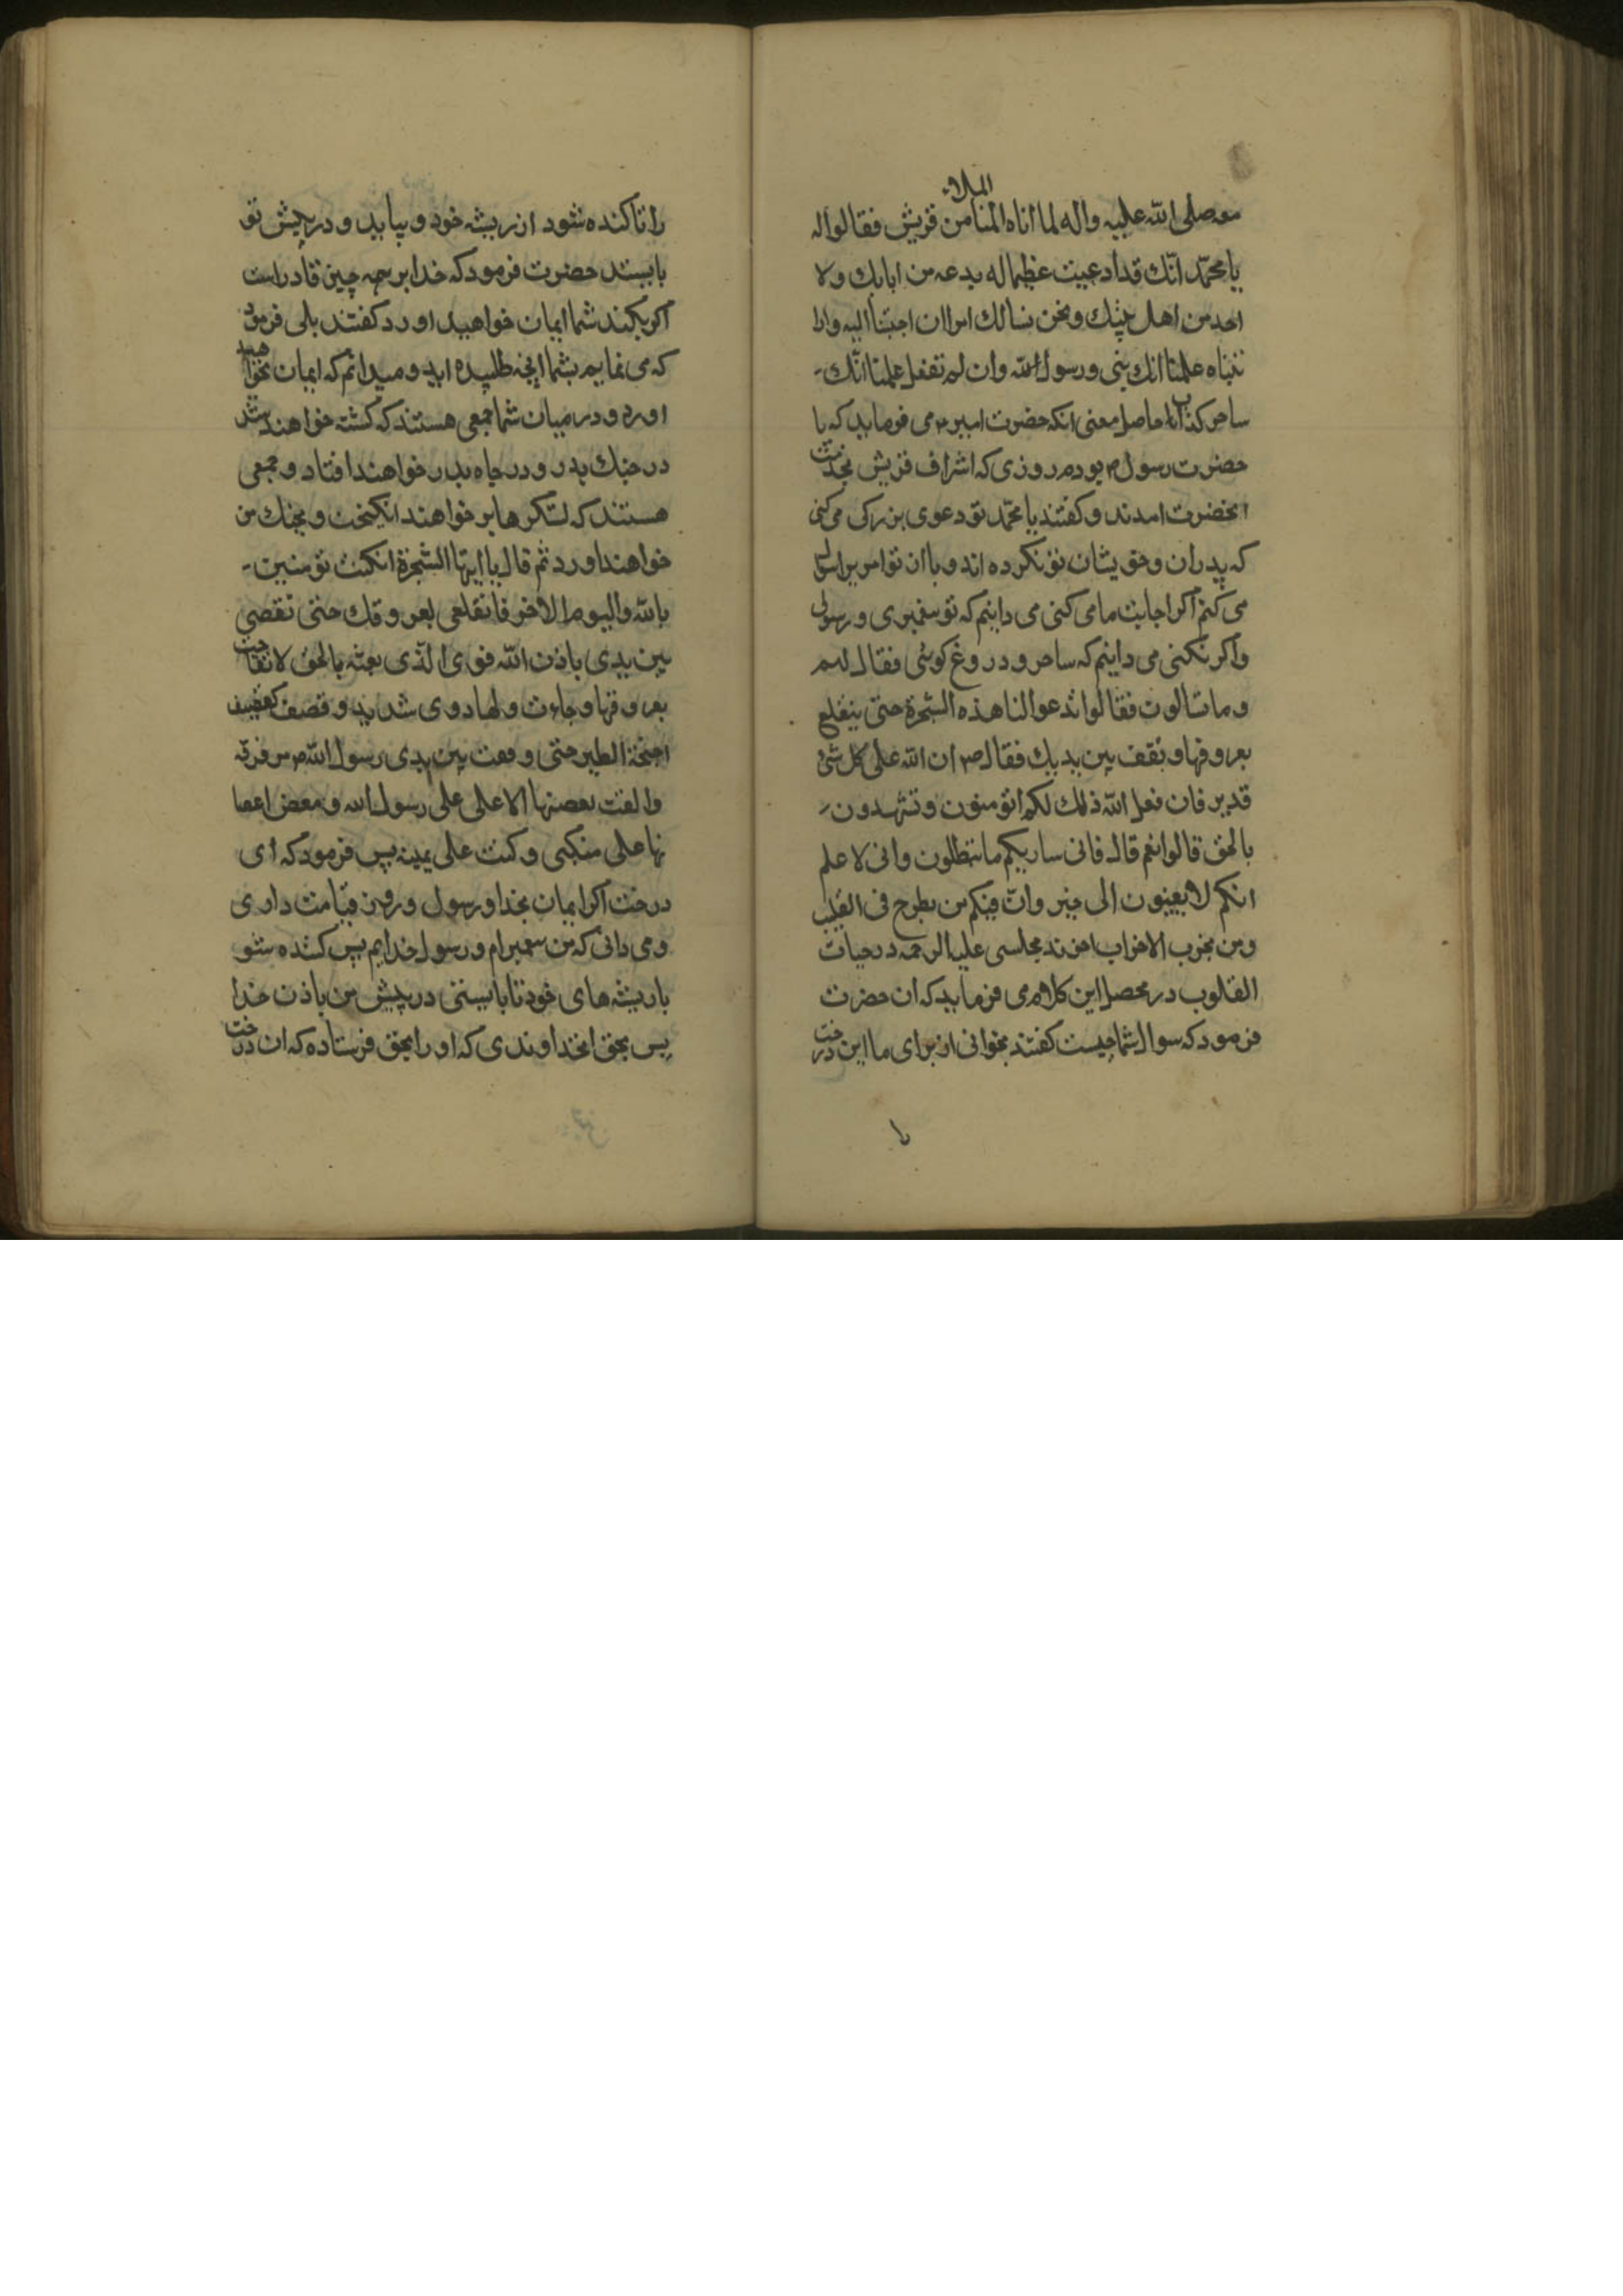 الملاء
معه صلی الله علیه واله لما اتاه المنا من قریش فقالوا له
یا محمّد انّک قد ادعیت عظیما له یدعه من ابابک ولا
احد من اهل بیتک ونحن نسالک امرا ان اجبتنا الیه وارا
نتناه علمنا انک نبی ورسول الله وان لم تفعل علمنا انّک
ساحر کذاب اما حاصل معنی انکه حضرت امیر م می فرماید که با
حضرت رسول م بودم روزی که اشراف قریش بخدمت
انحضرت امدند وکفتند یا محمّد تو دعوی بزرکی می کنی
که پدران وخویشان تو نکرده اند وبا ان تو امر برا سوال
می کنم اکر اجابت ما می کنی می دانیم که تو پیغمبری ورسولی
واکر نکنی می دانیم که ساحر ودروغ کوئی فقال لهم
وما تسالون فقالوا تدعوا لنا هذه الشجرة حتی ینقلع
بعروقها وتقف بین یدیک فقال ص ان الله علی کل شئ
قدیر فان فعل الله ذلک لکم اتؤمنون وتشهدون
بالحق قالوا نعم قال فانی ساریکم ما تتطلون وانی لا علم
انکم لا یفیئون الی خیر وانّ فیکم من یطرح فی القلیب
ومن یحزب الاحزاب اخوند مجلسی علیه الرحمه در حیات
القلوب در محصل این کلام می فرماید که ان حضرت
فرمود که سوال شما چیست کفتند بخوانی از برای ما این درخت
را تا کنده شود از ریشه خود و بیاید و در پیش تو
بایستد حضرت فرمود که خدا بر همه چیز قادر است
اکر بکند شما ایمان خواهید اورد کفتند بلی فرمود
که می نمایم بشما انچه طلبیده اید و میدانم که ایمان نخواهید
اورد و در میان شما جمعی هستند که کشته خواهند شد
در جنک بدر و در چاه بدر خواهند افتاد و جمعی
هستند که لشکرها بر خواهند انکیخت و بجنک من
خواهند اورد ثم قال یا ایتها الشجرة ان کنت تؤمنین
بالله والیوم الاخر فانقلعی بعروقک حتی تقصی
بین یدی باذن الله فوی الذی بعثه بالحق لانقلعت
بعروقها وجاءت ولها دوی شدید وقصف کقصیف
اجنحة الطیر حتی وقعت بین یدی رسول الله ص مرفرفه
والقت بعصنها الاعلی علی رسول الله وبعض اعصا
نها علی منکبی وکنت علی یمینه پس فرمود که ای
درخت اکر ایمان بخدا ورسول وروز قیامت داری
ومی دانی که من پیغمبرام ورسول خدایم پس کنده شو
با ریشه های خود تا بایستی در پیش من باذن خدا
پس بحق انخداوندی که او را بحق فرستاده که ان درخت